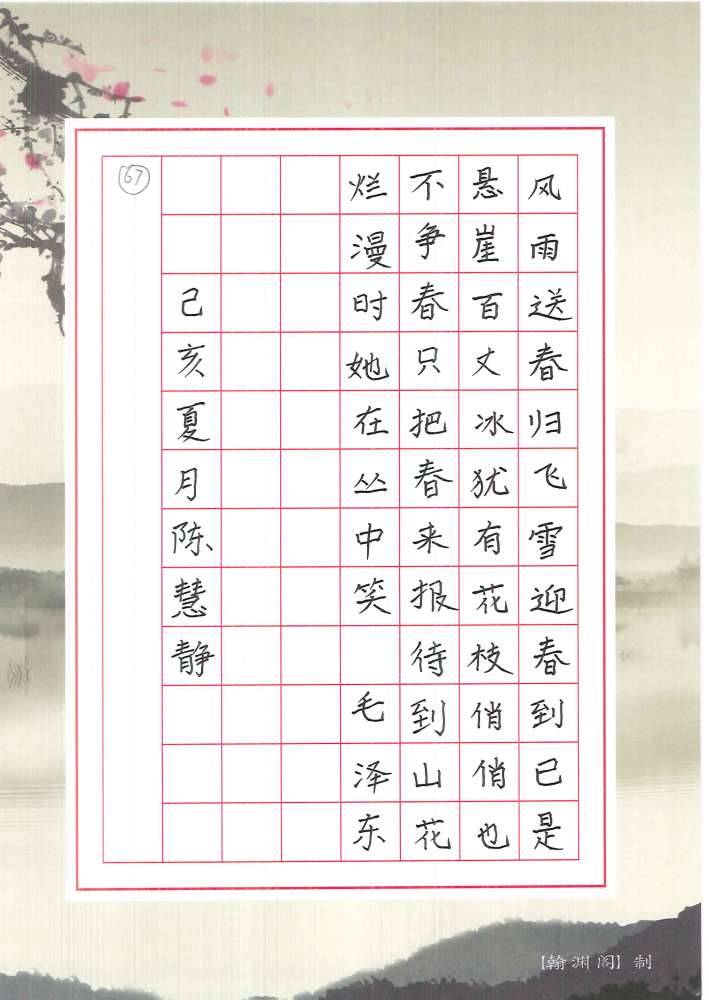 风雨送春归飞雪迎春到已是
悬崖百丈冰犹有花枝俏俏也
不争春只把春来报待到山花
烂漫时她在丛中笑 毛泽东
己亥夏月陈慧静
67
【翰渊阁】制